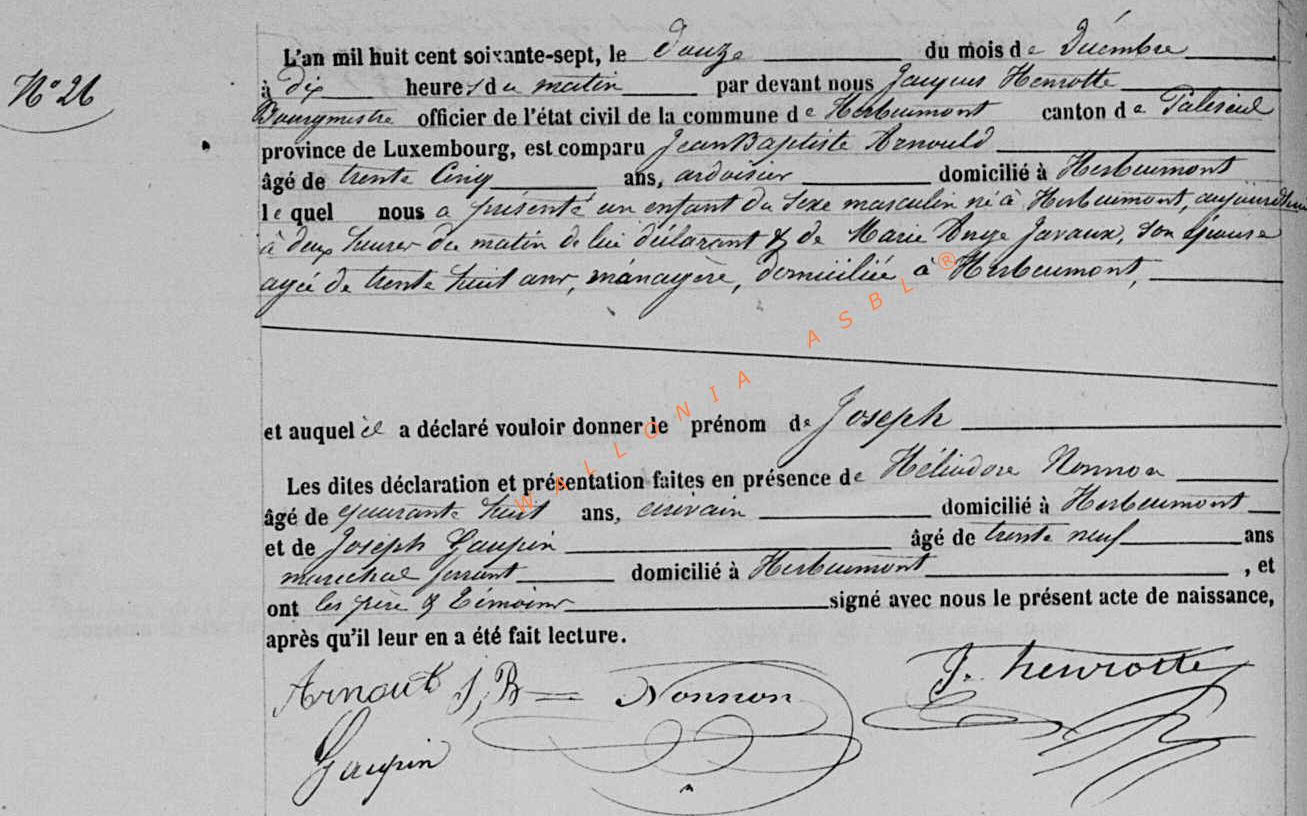 N° 26
L'an mil huit cent soixante-sept, le Douze du mois de Décembre
à dix heures du matin par devant nous Jacques Henrotte
Bourgmestre officier de l'état civil de la commune de Herbeumont canton de Paliseul
province de Luxembourg, est comparu Jean Baptiste Arnould
âgé de trente Cinq ans, ardoisier domicilié à Herbeumont
lequel nous a présenté un enfant du sexe masculin né à Herbeumont, aujourdhui
à deux heures du matin de lui déclarant & de Marie Ange Javaux, son épouse
agée de trente huit ans, ménagère, domiciliée à Herbeumont,
et auquel il a déclaré vouloir donner le prénom de Joseph
Les dites déclaration et présentation faites en présence de Héliodore Nonnon
âgé de quarante huit ans, écrivain domicilié à Herbeumont
et de Joseph Gaupin âgé de trente neuf ans
marechal ferrant domicilié à Herbeumont, et
ont les père & témoins signé avec nous le présent acte de naissance,
après qu'il leur en a été fait lecture.
Arnout J, B Nonnon J. henrotte
Gaupin
WALLONIA ASBL ®